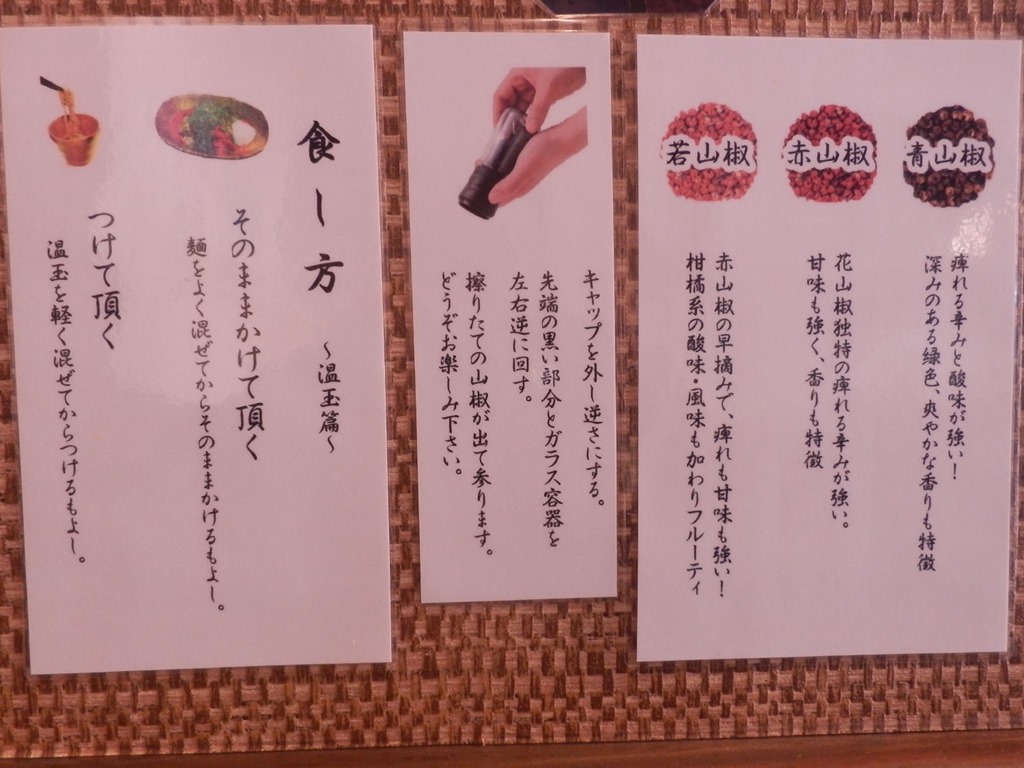 青山椒
痺れる辛みと酸味が強い！
深みのある緑色、爽やかな香りも特徴
赤山椒
花山椒独特の痺れる辛みが強い。
甘味も強く、香りも特徴
若山椒
赤山椒の早摘みで、痺れも甘味も強い！
柑橘系の酸味・風味も加わりフルーティ
キャップを外し逆さにする。
先端の黒い部分とガラス容器を
左右逆に回す。
擦りたての山椒が出て参ります。
どうぞお楽しみ下さい。
食し方 ～温玉篇～
そのままかけて頂く
麺をよく混ぜてからそのままかけるもよし。
つけて頂く
温玉を軽く混ぜてからつけるもよし。